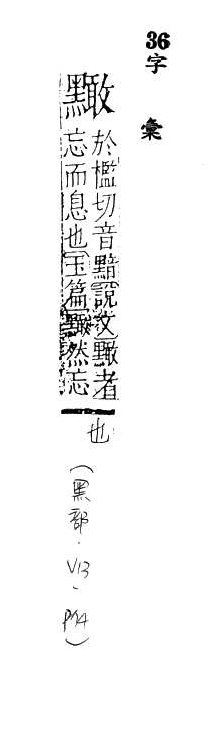 36
字彙
𪒠
於檻切音黯〔說文〕𪒠者
忘而息也〔玉篇〕𪒠然忘
也
(黑部.V13、